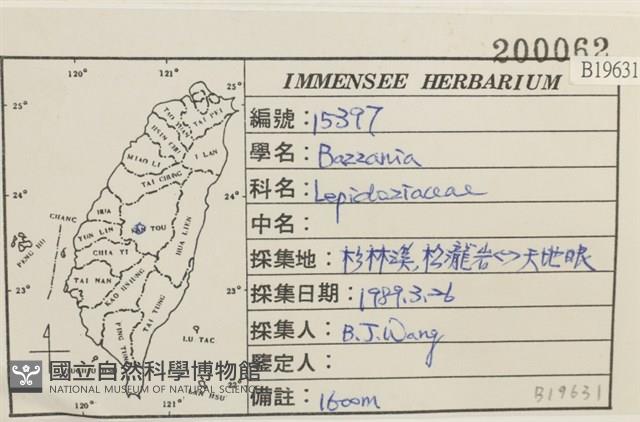 200062
B19631
IMMENSEE HERBARIUM
編號：15397
學名：Bazzania
科名：Lepidoziaceae
中名：
採集地：杉林溪,松瀧岩<->天地眼
採集日期：1989.3.26
採集人：B.J.Wang
鑒定人：
備註：1600m
B19631
120° 121°
25° 25°
TAI PEI
I LAN
MIAO LI
TAI CHUNG
24° 24°
CHANG
HUA
NAN TOU
YUN LIN
HUA LIEN
PENG HU
CHIA YI
TAI NAN
KAO HSIUNG
23° 23°
TAI TUNG
PING TUNG
LU TAO
22°
120° 121°
國立自然科學博物館
NATIONAL MUSEUM OF NATURAL SCIENCE